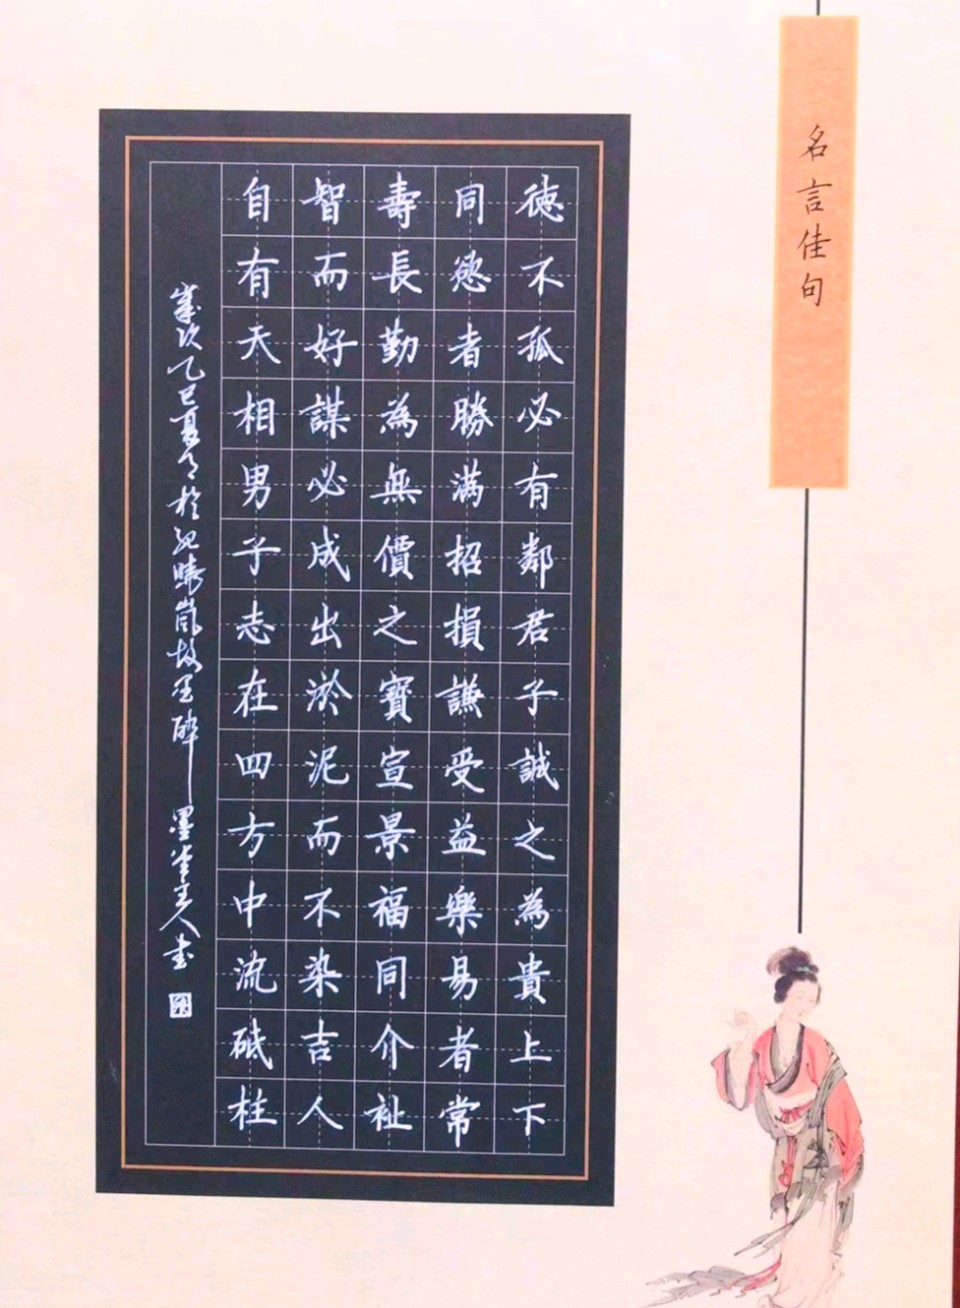 名言佳句
德不孤必有鄰君子誠之為貴上下
同慾者勝滿招損謙受益樂易者常
壽長勤為無價之寶宣景福同介祉
智而好謀必成出淤泥而不染吉人
自有天相男子志在四方中流砥柱
歲次乙巳夏月於紀曉嵐故里醉墨堂主人書